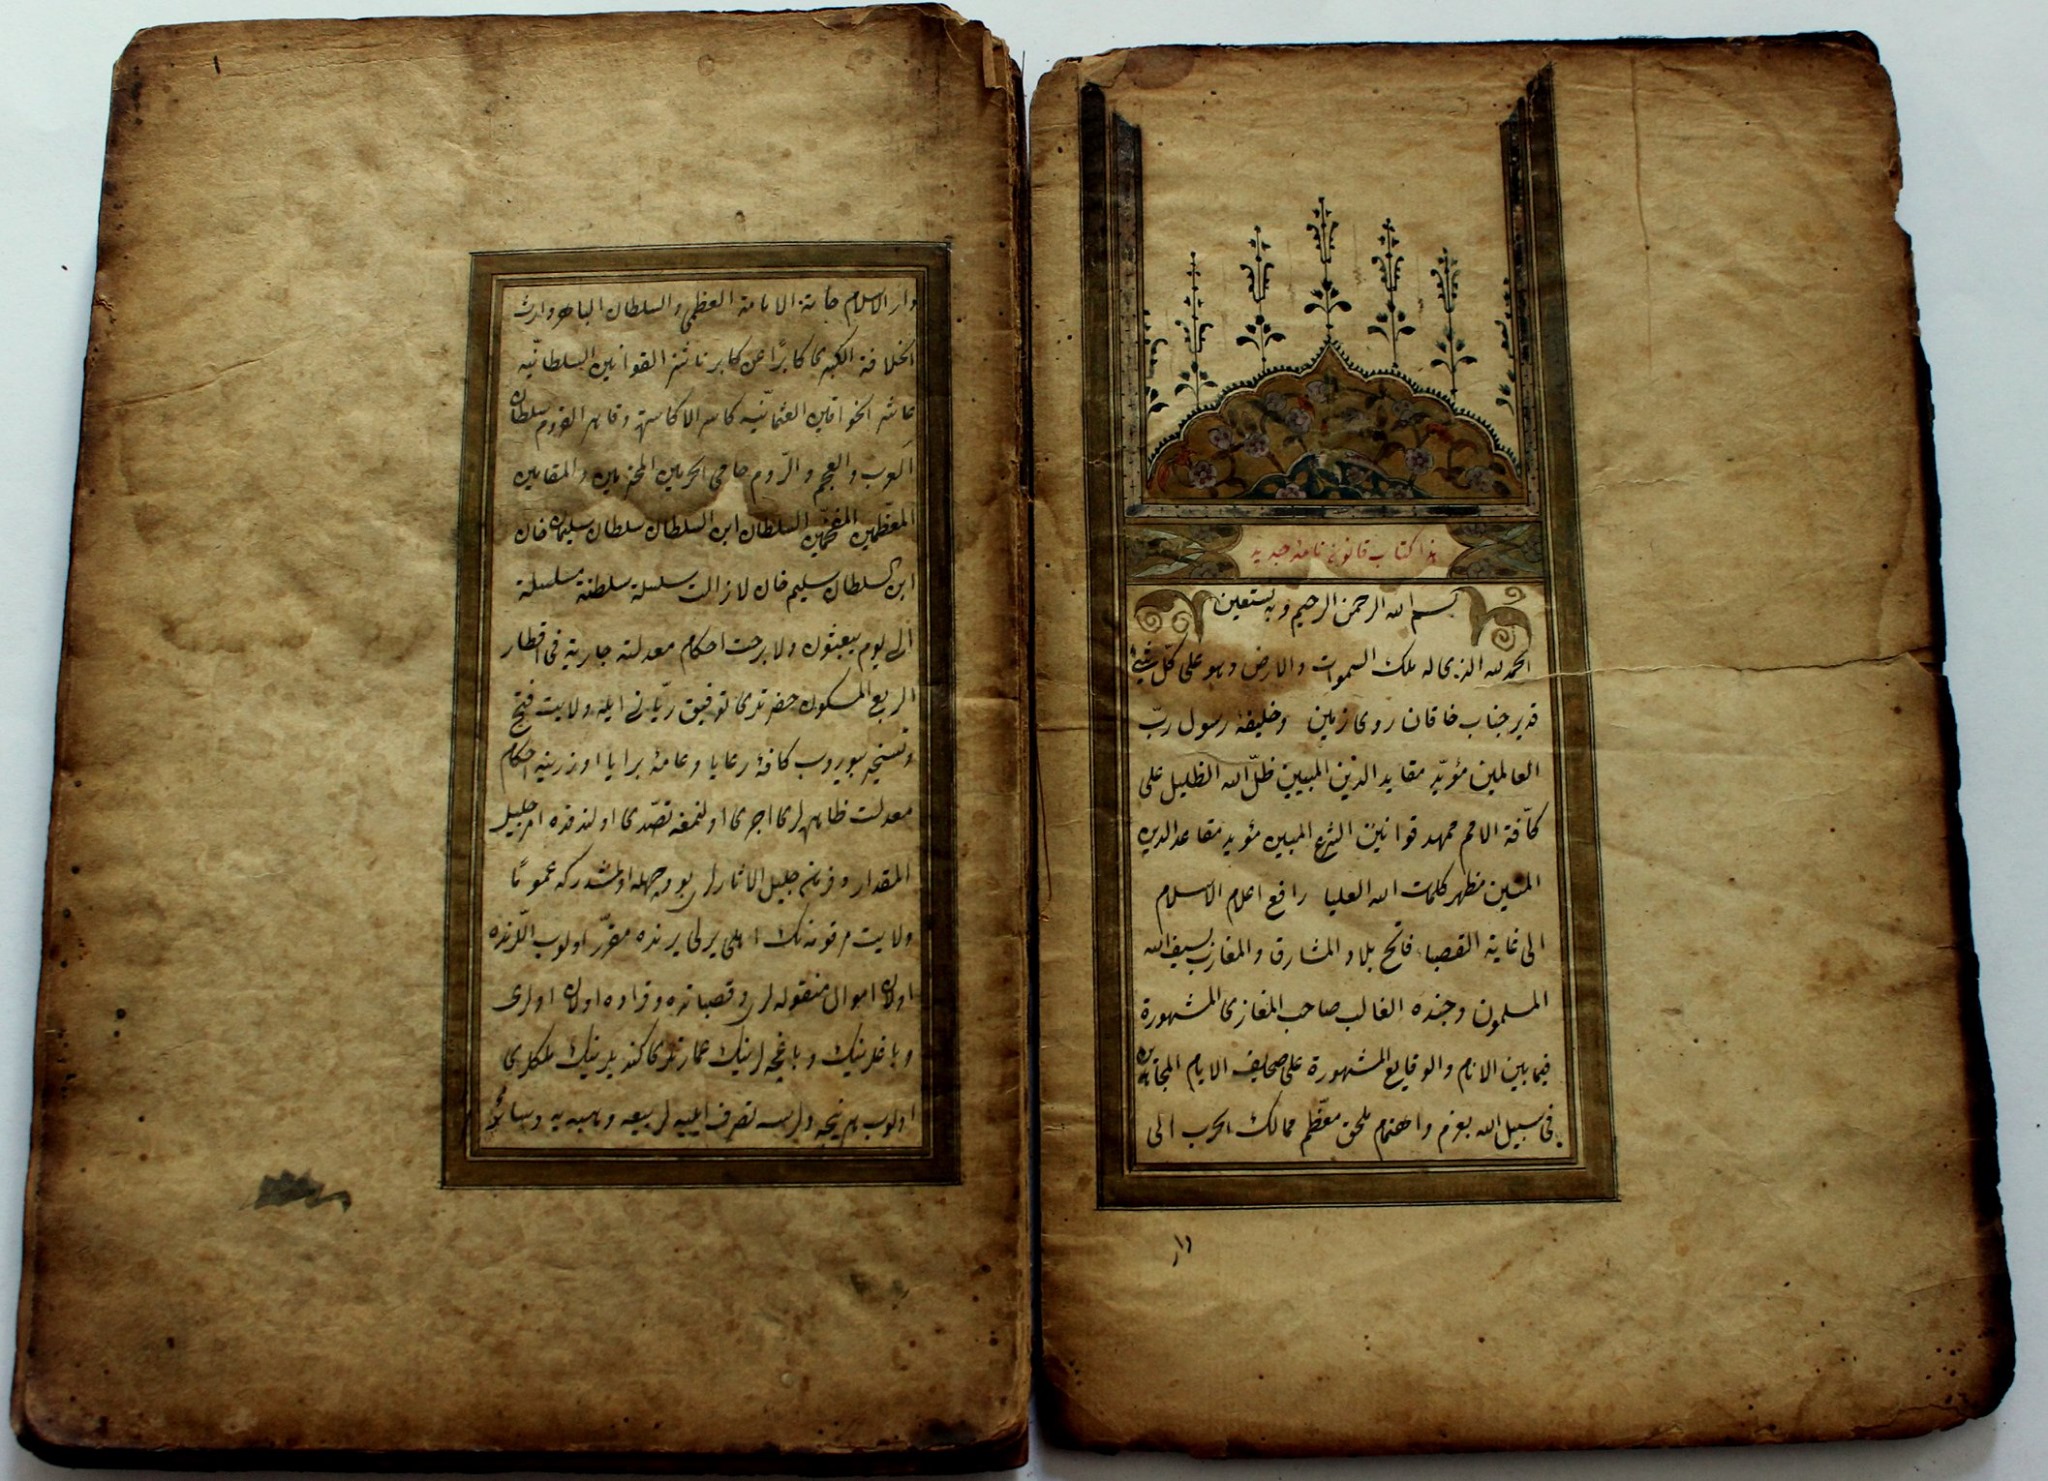 هذا كتاب قانون نامۀ جديد
بسم الله الرحمن الرحيم وبه نستعين
الحمد لله الذى له ملك السموات والارض وهو على كلّ شئ
قدير جناب خاقان روى زمين وخليفۀ رسول ربّ
العالمين مؤيّد مقايد الدين المبين ظلّ الله الظليل على
كآفة الامم ممهد قوانين الشرع المبين مؤيد مقاعد الدين
المتين مظهر كلمات الله العليا رافع اعلام الاسلام
الى غاية القصيا فاتح بلاد المشارق والمغارب بسيف الله
المسلول وجنده الغالب صاحب المغازى المشهورة
فيما بين الانام والوقايع المشهورة على صحايف الايام المجاهد
فى سبيل الله بعزم واهتمام ملحق معظّم ممالك الحرب الى
دار
دار الاسلام حائز الامامة العظمى والسلطان الباهر وارث
الخلافة الكبرى كابرًا عن كابر ناشر القوانين السلطانيّه
عاشر الخواقين العثمانيّه كاسر الاكاسره وقاهر القروم سلطان
العرب والعجم والرّوم حامى الحرمين المحترمين والمقامين
المعظّمين المفخّمين السلطان ابن السلطان سلطان سليمان خان
ابن السلطان سليم خان لا زالت سلسلة سلطنته مسلسلة
الى يوم يبعثون ولا برحت احكام معدلته جارية فى اقطار
الربع المسكون حضرتلرى توفيق ربّانى ايله ولايت فتح
وتسخير بيوروب كافۀ رعايا وعامۀ برايا اوزرينه احكام
معدلت ظاهرلرى اجرى اولنمغه تصدّى اولندقده امر جليل
المقدار وفرمان جليل الاثارلرى بو وجهله اولمشدر كه عمومًا
ولايت مرقومه نك اهلى يرلى يرنده مقرّر اولوب اللرنده
اولان اموال منقوله لرى وقصباتده وقراده اولان اولرى
وباغلرينك وباغچه لرينك عمارتلرى كنديلرينك ملكلرى
اولوب هر نيجه ديلرلرسه تصرف ايليه لر بيعه وهبه يه وسائر